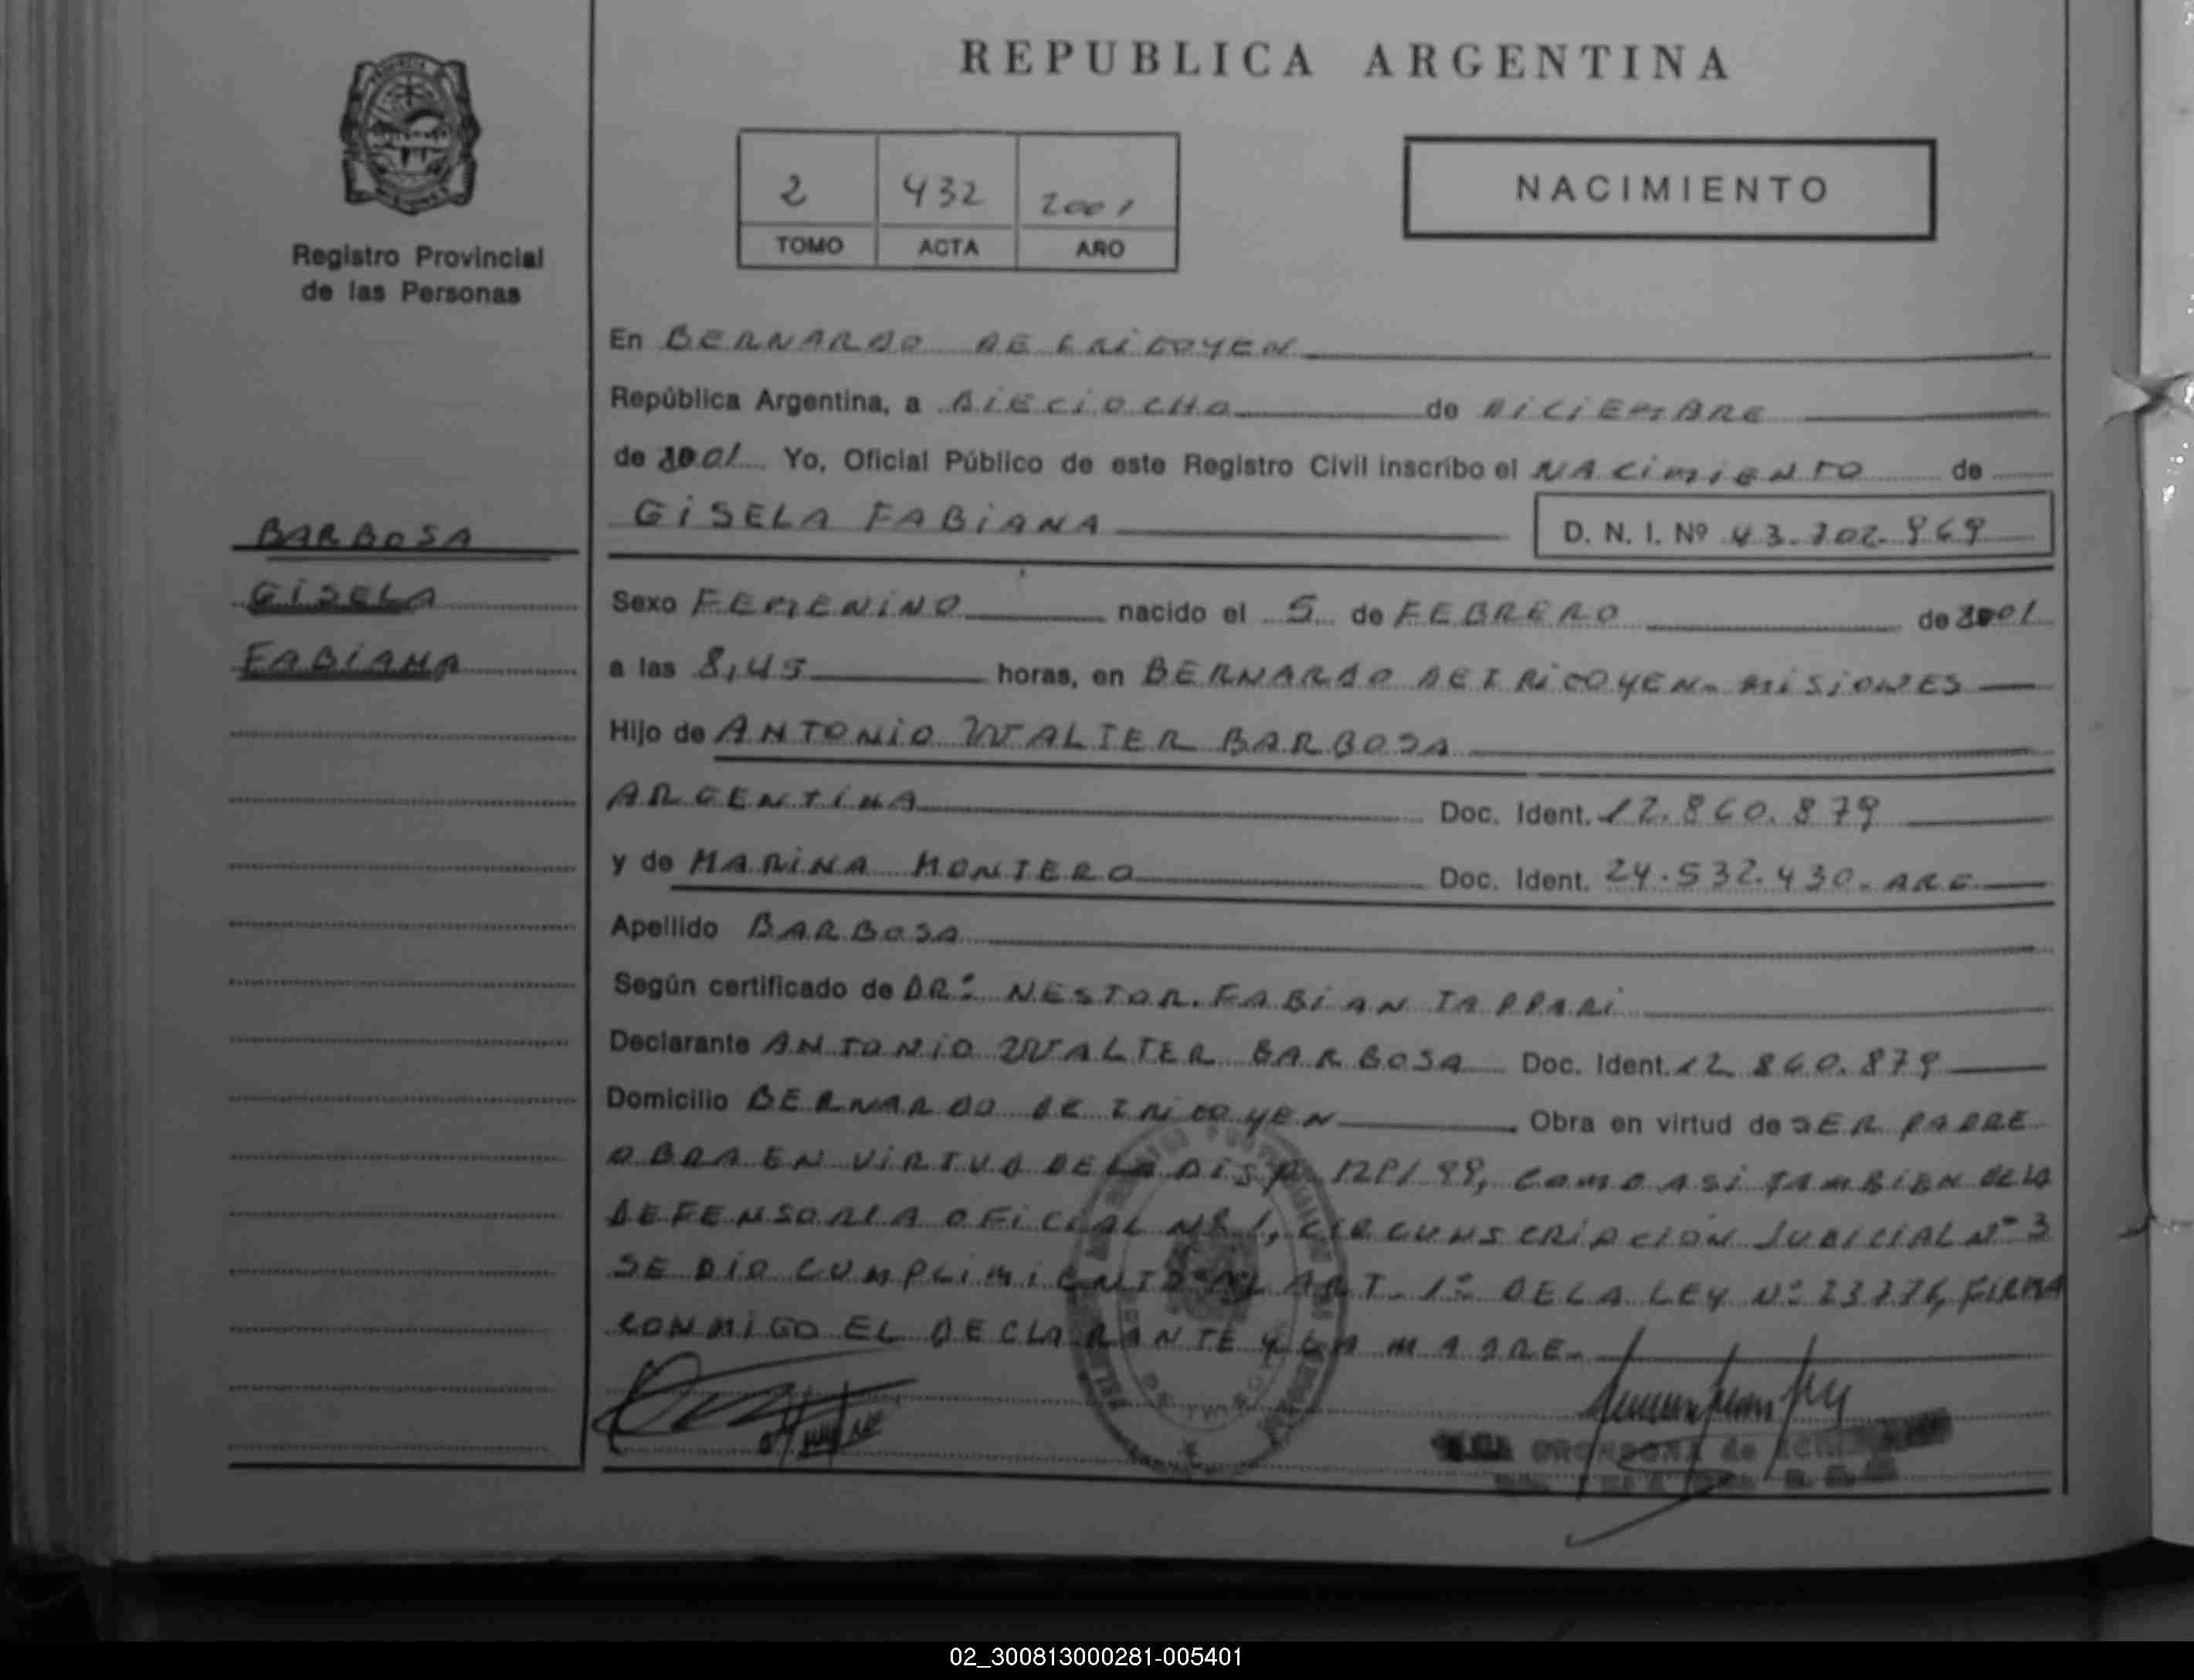 REPUBLICA ARGENTINA
Registro Provincial
de las Personas
2 432 2001
TOMO ACTA AÑO
NACIMIENTO
En BERNARDO DE IRIGOYEN
República Argentina, a DIECIOCHO de DICIEMBRE
de 2001 Yo, Oficial Público de este Registro Civil inscribo el NACIMIENTO de
GISELA FABIANA D. N. I. Nº 43.702.969
BARBOSA
GISELA
FABIANA
Sexo FEMENINO nacido el 5 de FEBRERO de 2001
a las 8,45 horas, en BERNARDO DE IRIGOYEN- MISIONES
Hijo de ANTONIO WALTER BARBOSA
ARGENTINA Doc. Ident. 12.860.879
y de MARINA MONTERO Doc. Ident. 24.532.430- ARG
Apellido BARBOSA
Según certificado de DR: NESTOR FABIAN TAPPARI
Declarante ANTONIO WALTER BARBOSA Doc. Ident. 12.860.879
Domicilio BERNARDO DE IRIGOYEN Obra en virtud de SER PADRE
OBRA EN VIRTUD DE LA DISP. COMO ASI TAMBIEN DE LA
DEFENSORIA OFICIAL Nº 1, CIRCUNSCRIPCION JUDICIAL Nº 3
SE DIO CUMPLIMIENTO AL ART. 1º DE LA LEY Nº 23776, FIRMA
CONMIGO EL DECLARANTE Y LA MADRE-
02_300813000281-005401